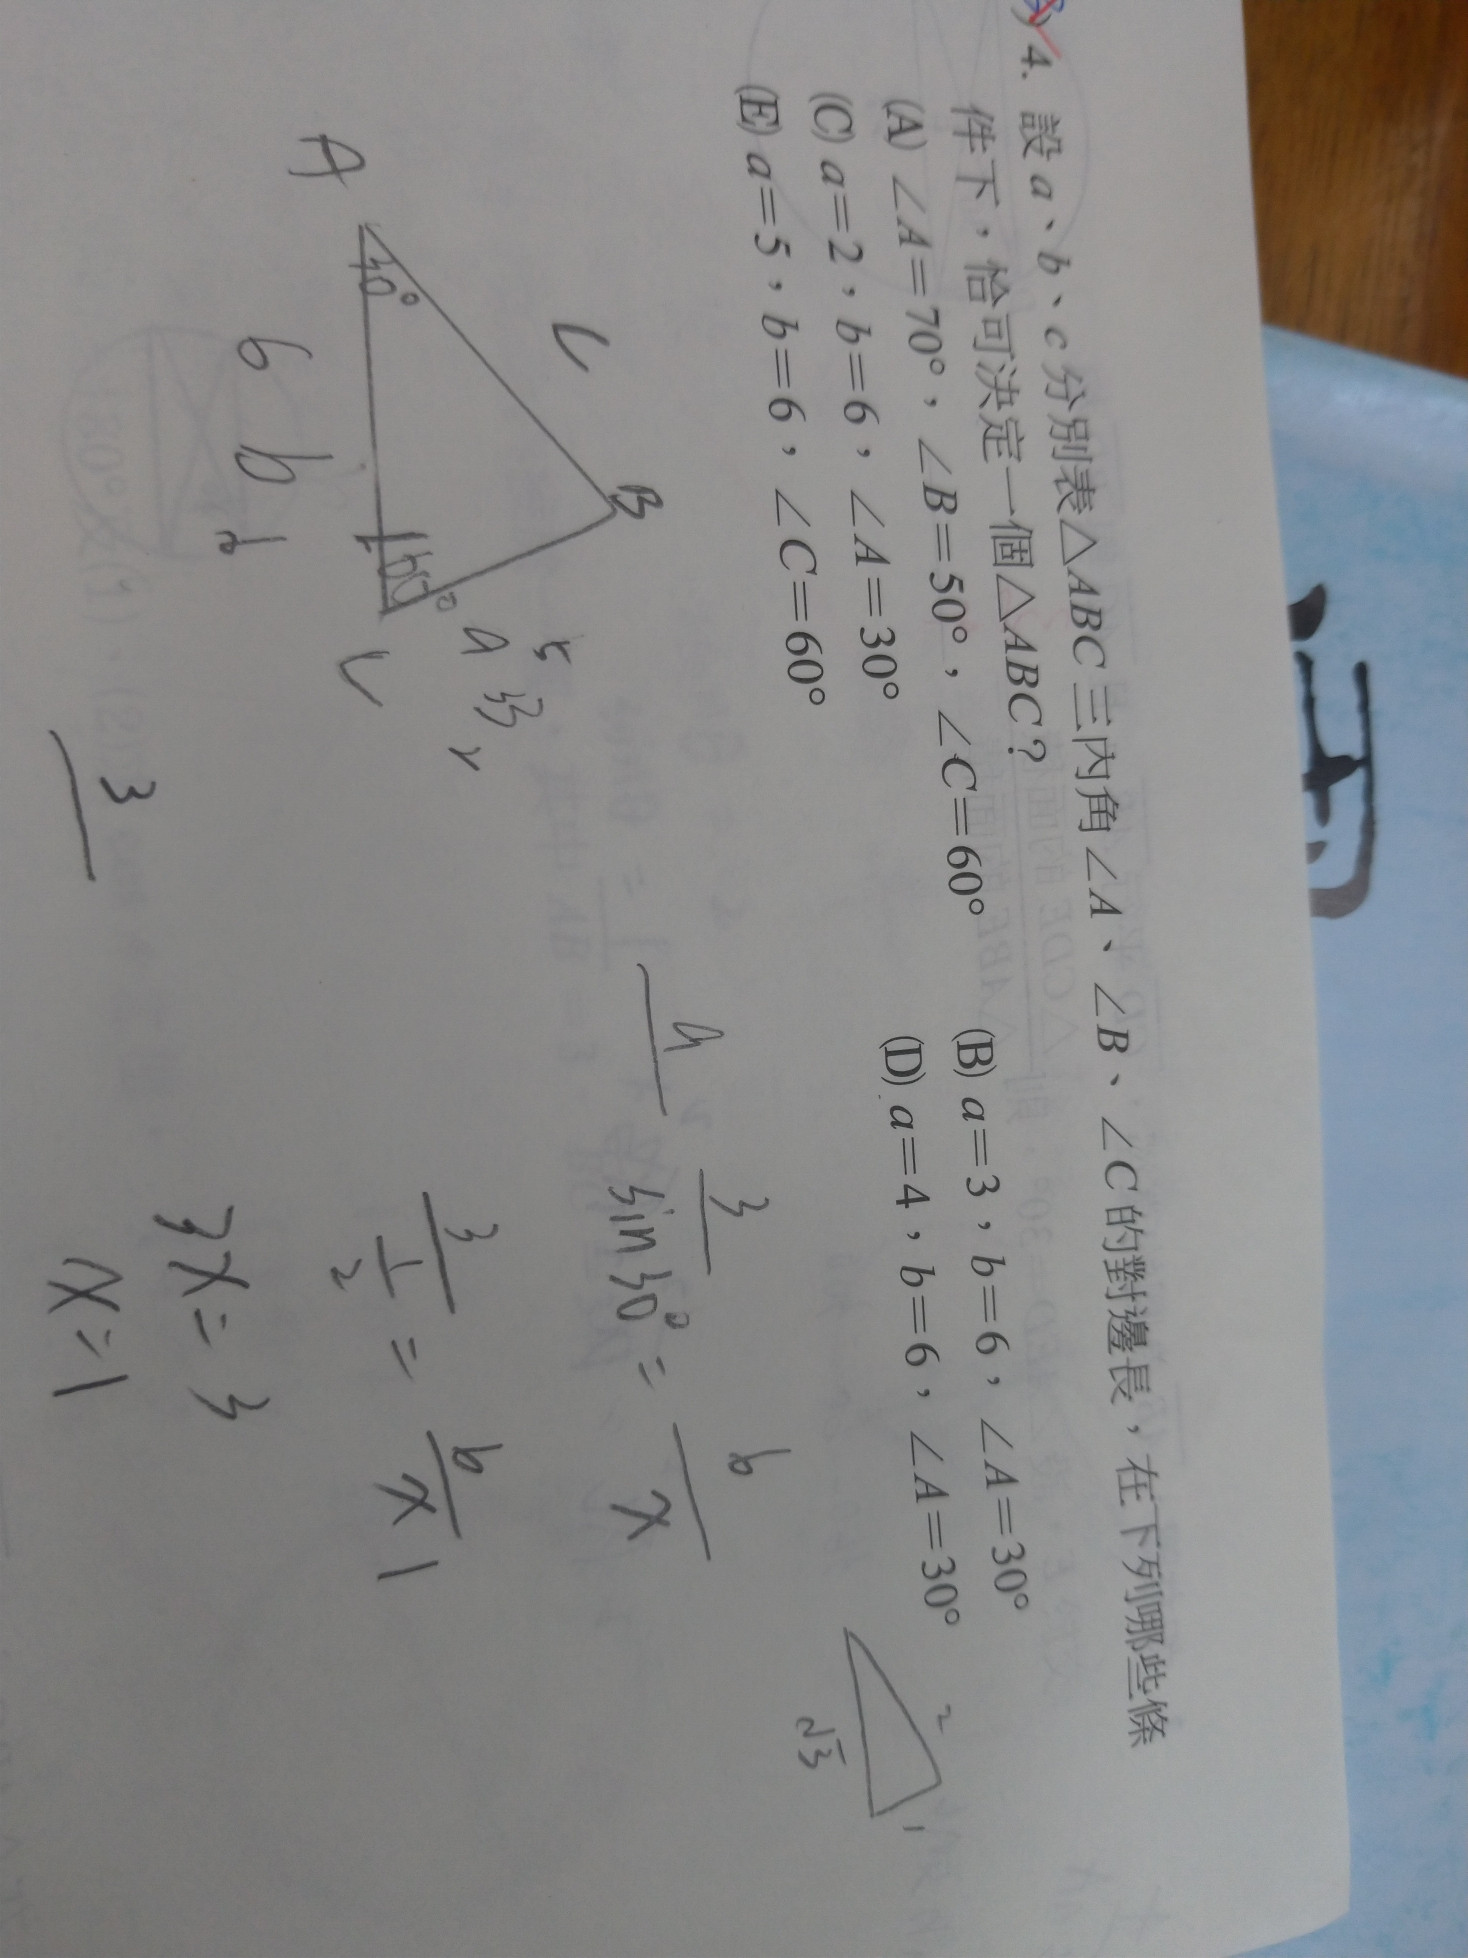 4. 設 a、b、c 分別表△ABC 三內角∠A、∠B、∠C 的對邊長，在下列哪些條
件下，恰可決定一個△ABC？
(A) ∠A=70°，∠B=50°，∠C=60°
(B) a=3，b=6，∠A=30°
(C) a=2，b=6，∠A=30°
(D) a=4，b=6，∠A=30°
(E) a=5，b=6，∠C=60°
2
1
√3
B
A
30°
60°
a
5
3
2
6
b
3
4
3
sin30°
=
6
x
3
1
2
=
6
x
1
3x=3
x=1